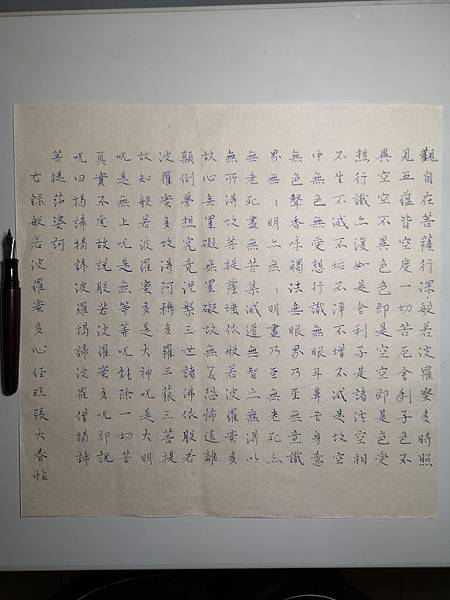 觀自在菩薩行深般若波羅蜜多時照
見五蘊皆空度一切苦厄舍利子色不
異空空不異色色即是空空即是色受
想行識亦復如是舍利子是諸法空相
不生不滅不垢不淨不增不減是故空
中無色無受想行識無眼耳鼻舌身意
無色聲香味觸法無眼界乃至無意識
界無:明亦無:明盡乃至無老死亦
無老死盡無苦集滅道無智亦無得以
無所得故菩提薩埵依般若波羅蜜多
故心無罣礙無罣礙故無有恐怖遠離
顛倒夢想究竟涅槃三世諸佛依般若
波羅蜜多故得阿耨多羅三藐三菩提
故知般若波羅蜜多是大神呪是大明
呪是無上呪是無等等呪能除一切苦
真實不虛故說般若波羅蜜多呪即說
呪曰揭諦揭諦波羅揭諦波羅僧揭諦
菩提莎婆訶
右錄般若波羅蜜多心經張大春帖